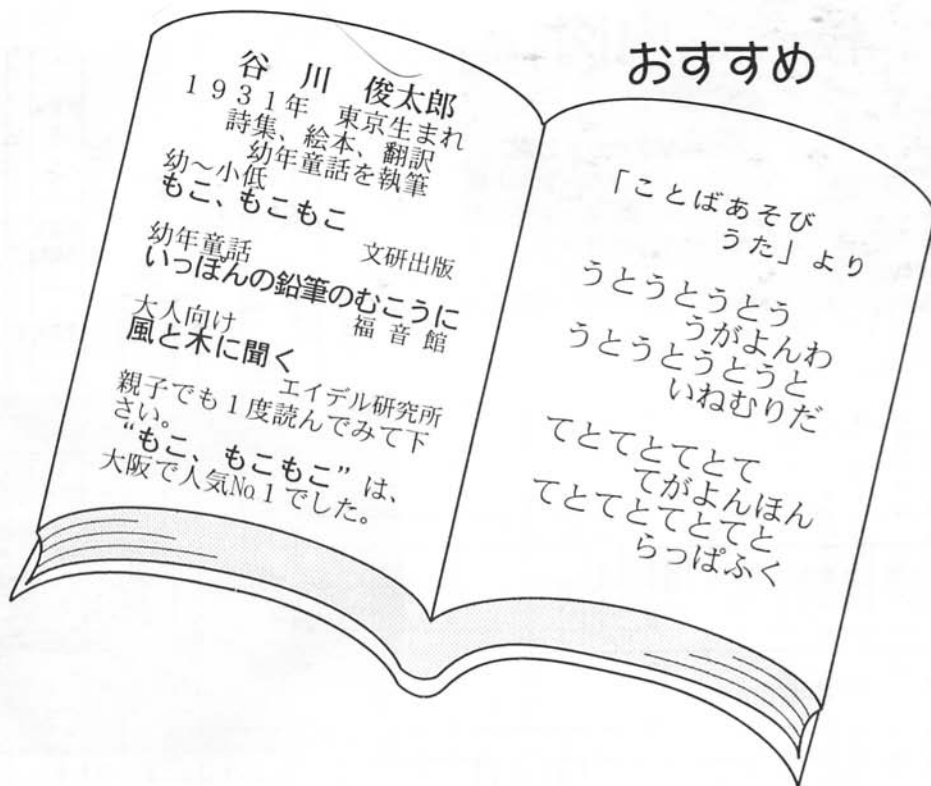 おすすめ
谷川 俊太郎
1931年 東京生まれ
詩集、絵本、翻訳
幼年童話を執筆
幼〜小低
もこ、もこもこ
文研出版
幼年童話
いっぽんの鉛筆のむこうに
福音館
大人向け
風と木に聞く
エイデル研究所
親子でも1度読んでみて下
さい。
“もこ、もこもこ”は、
大阪で人気No.1でした。
「ことばあそび
うた」より
うとうとうとう
うがよんわ
うとうとうとうと
いねむりだ
てとてとてとて
てがよんほん
てとてとてとてと
らっぱふく